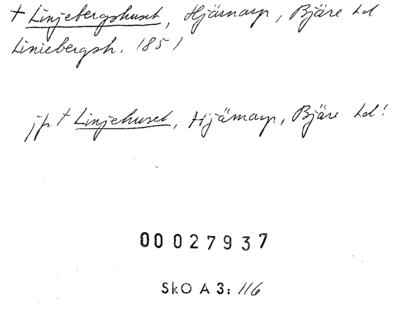 † Linjebergshuset, Hjärnarp, Bjäre hd
Liniebergsh. 1851
jfr † Linjehuset, Hjärnarp, Bjäre hd!
00 027937
SkO A 3: 116